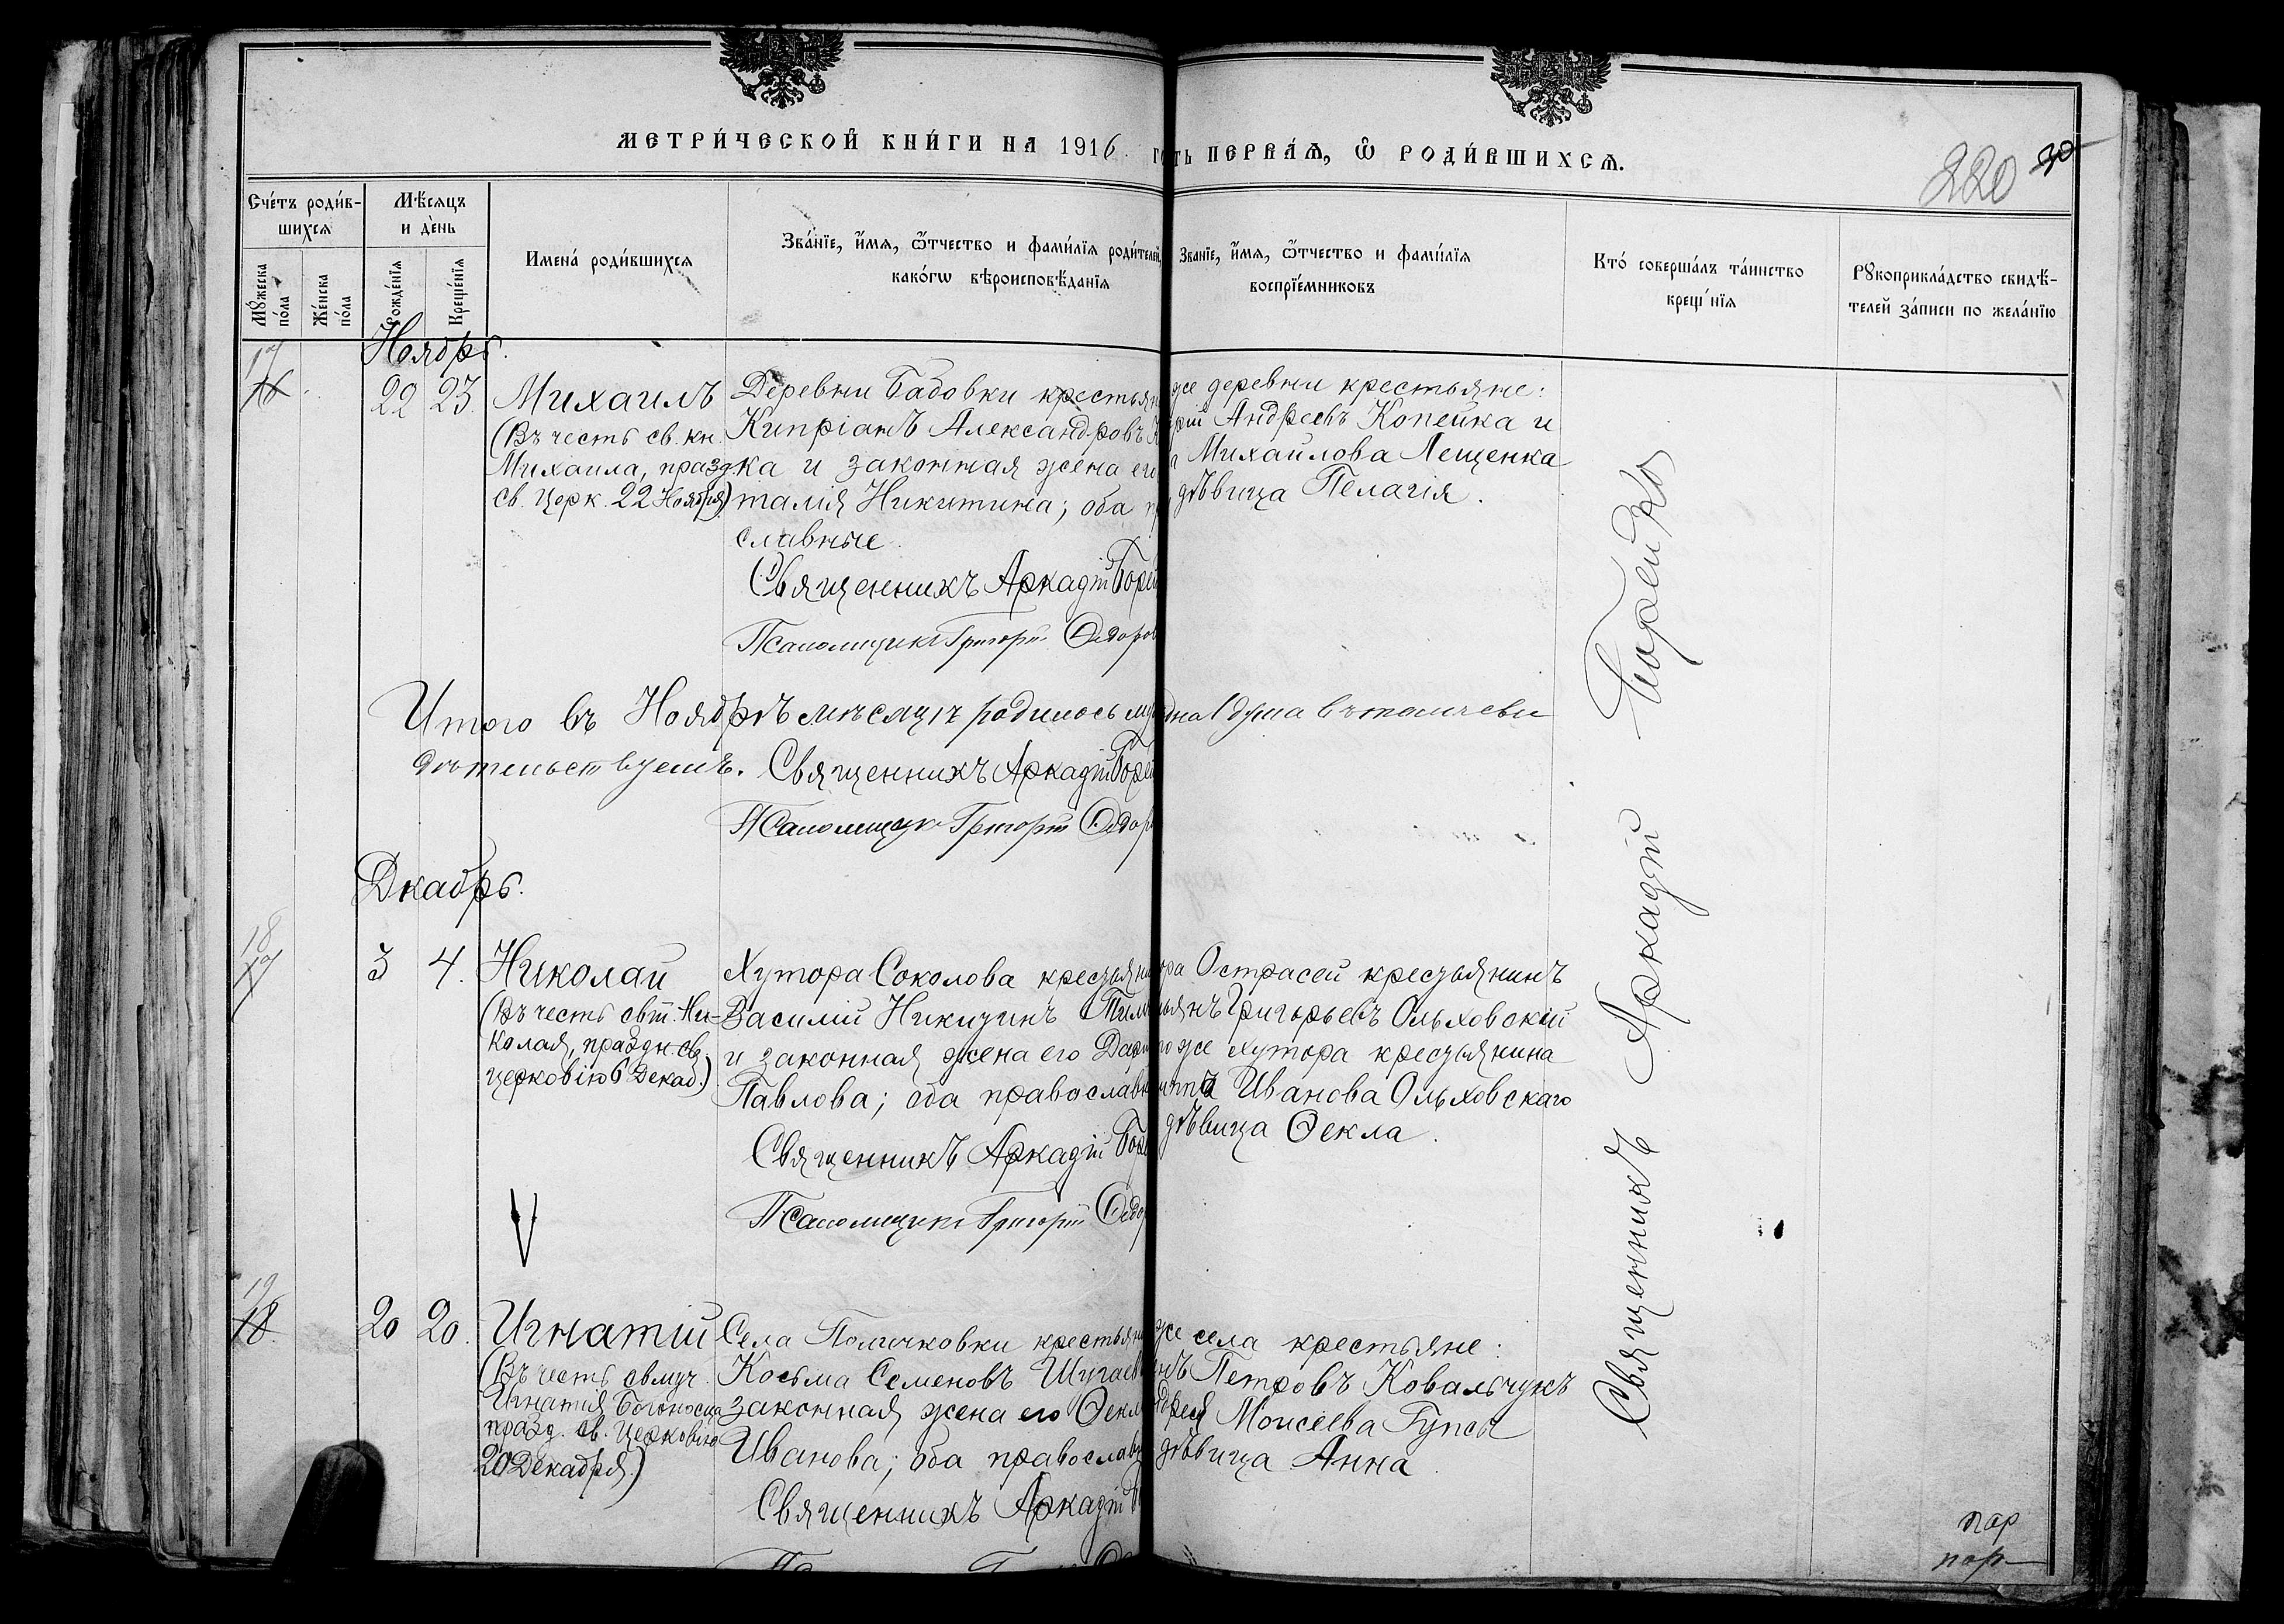 МЕТРИ́ЧЕСКОЙ КНИ́ГИ НА 1916.
ть ПЕРВАѦ, Ѡ РОДИ́ВШИХСѦ.
220 30
Сче́тъ роди́в-
шихсѧ
Мѣ́сѧцъ
и де́нь
Мꙋ́жеска по́ла
Же́нска по́ла
Рожде́нїѧ
Креще́нїѧ
Имена́ роди́вшихсѧ
Зва́нїе, и́мѧ, ѻ҆́тчество и фами́лїѧ роди́телей,
како́гѡ вѣроисповѣ́данїѧ
Зва́нїе, и́мѧ, ѻ҆́тчество и фами́лїѧ
воспрїе́мниковъ
Кто́ соверша́лъ та́инство
креще́нїѧ
Рꙋкоприкла́дство свидѣ́-
телей за́писи по жела́нїю
Ноябрь.
17
16
22 23.
Михаилъ
(Въ честь св. кн.
Михаила, празд
св. Церк. 22 Ноября)
Деревни Бадовки крестьян
Кипріанъ Александровъ К
ка и законная жена его
талія Никитина; оба п
славные.
Священникъ Аркадій Борей
Псаломщикъ Григорій Ѳедоров
же деревни крестьяне:
рій Андреевъ Копейка и
а Михаилова Лещенка
дѣвица Пелагія.
Итого въ Ноябрѣ мѣсяцѣ родилось му
дна 1 душа въ томъ сви
дѣтельствуемъ. Священникъ Аркадій Борей
Псаломщикъ Григорій Ѳедор
Дкабрь.
18
17
3 4.
Николай
(Въ честь свт. Ни-
колая, праздн. св.
церковію 6 Декаб.)
Хутора Соколова крестьяни
Василій Никитинъ
и законная жена его Дарі
Павлова; оба православн
Священникъ Аркадій Боре
Псаломщикъ Григорій Ѳедо
ра Острасей крестьянинъ
ьянъ Григорьевъ Ольховскій
го же хутора крестьянина
Иванова Ольховскаго
дѣвица Ѳекла.
19
18
20 20.
Игнатій
(Въ честь свмуч.
Игнатія Богоносца
празд. св. Церковію
20 Декабря.)
Села Поличковки крестьяни
Косьма Семеновъ Шугаев
законная жена его Ѳекл
Иванова; оба православ
Священникъ Аркадій
же села крестьяне:
нъ Петровъ Ковальчукъ
дрея Моисеева Гупсы
дѣвица Анна.
Священникъ Аркадій Борейко